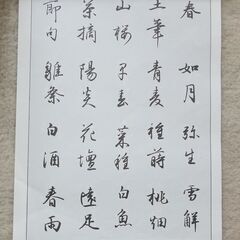 春 如月 弥生 雪解
土筆 青麦 種蒔 桃畑
山桜 菜種 白魚
茶摘 陽炎 花壇 遠足
節句 雛祭 白酒 春雨